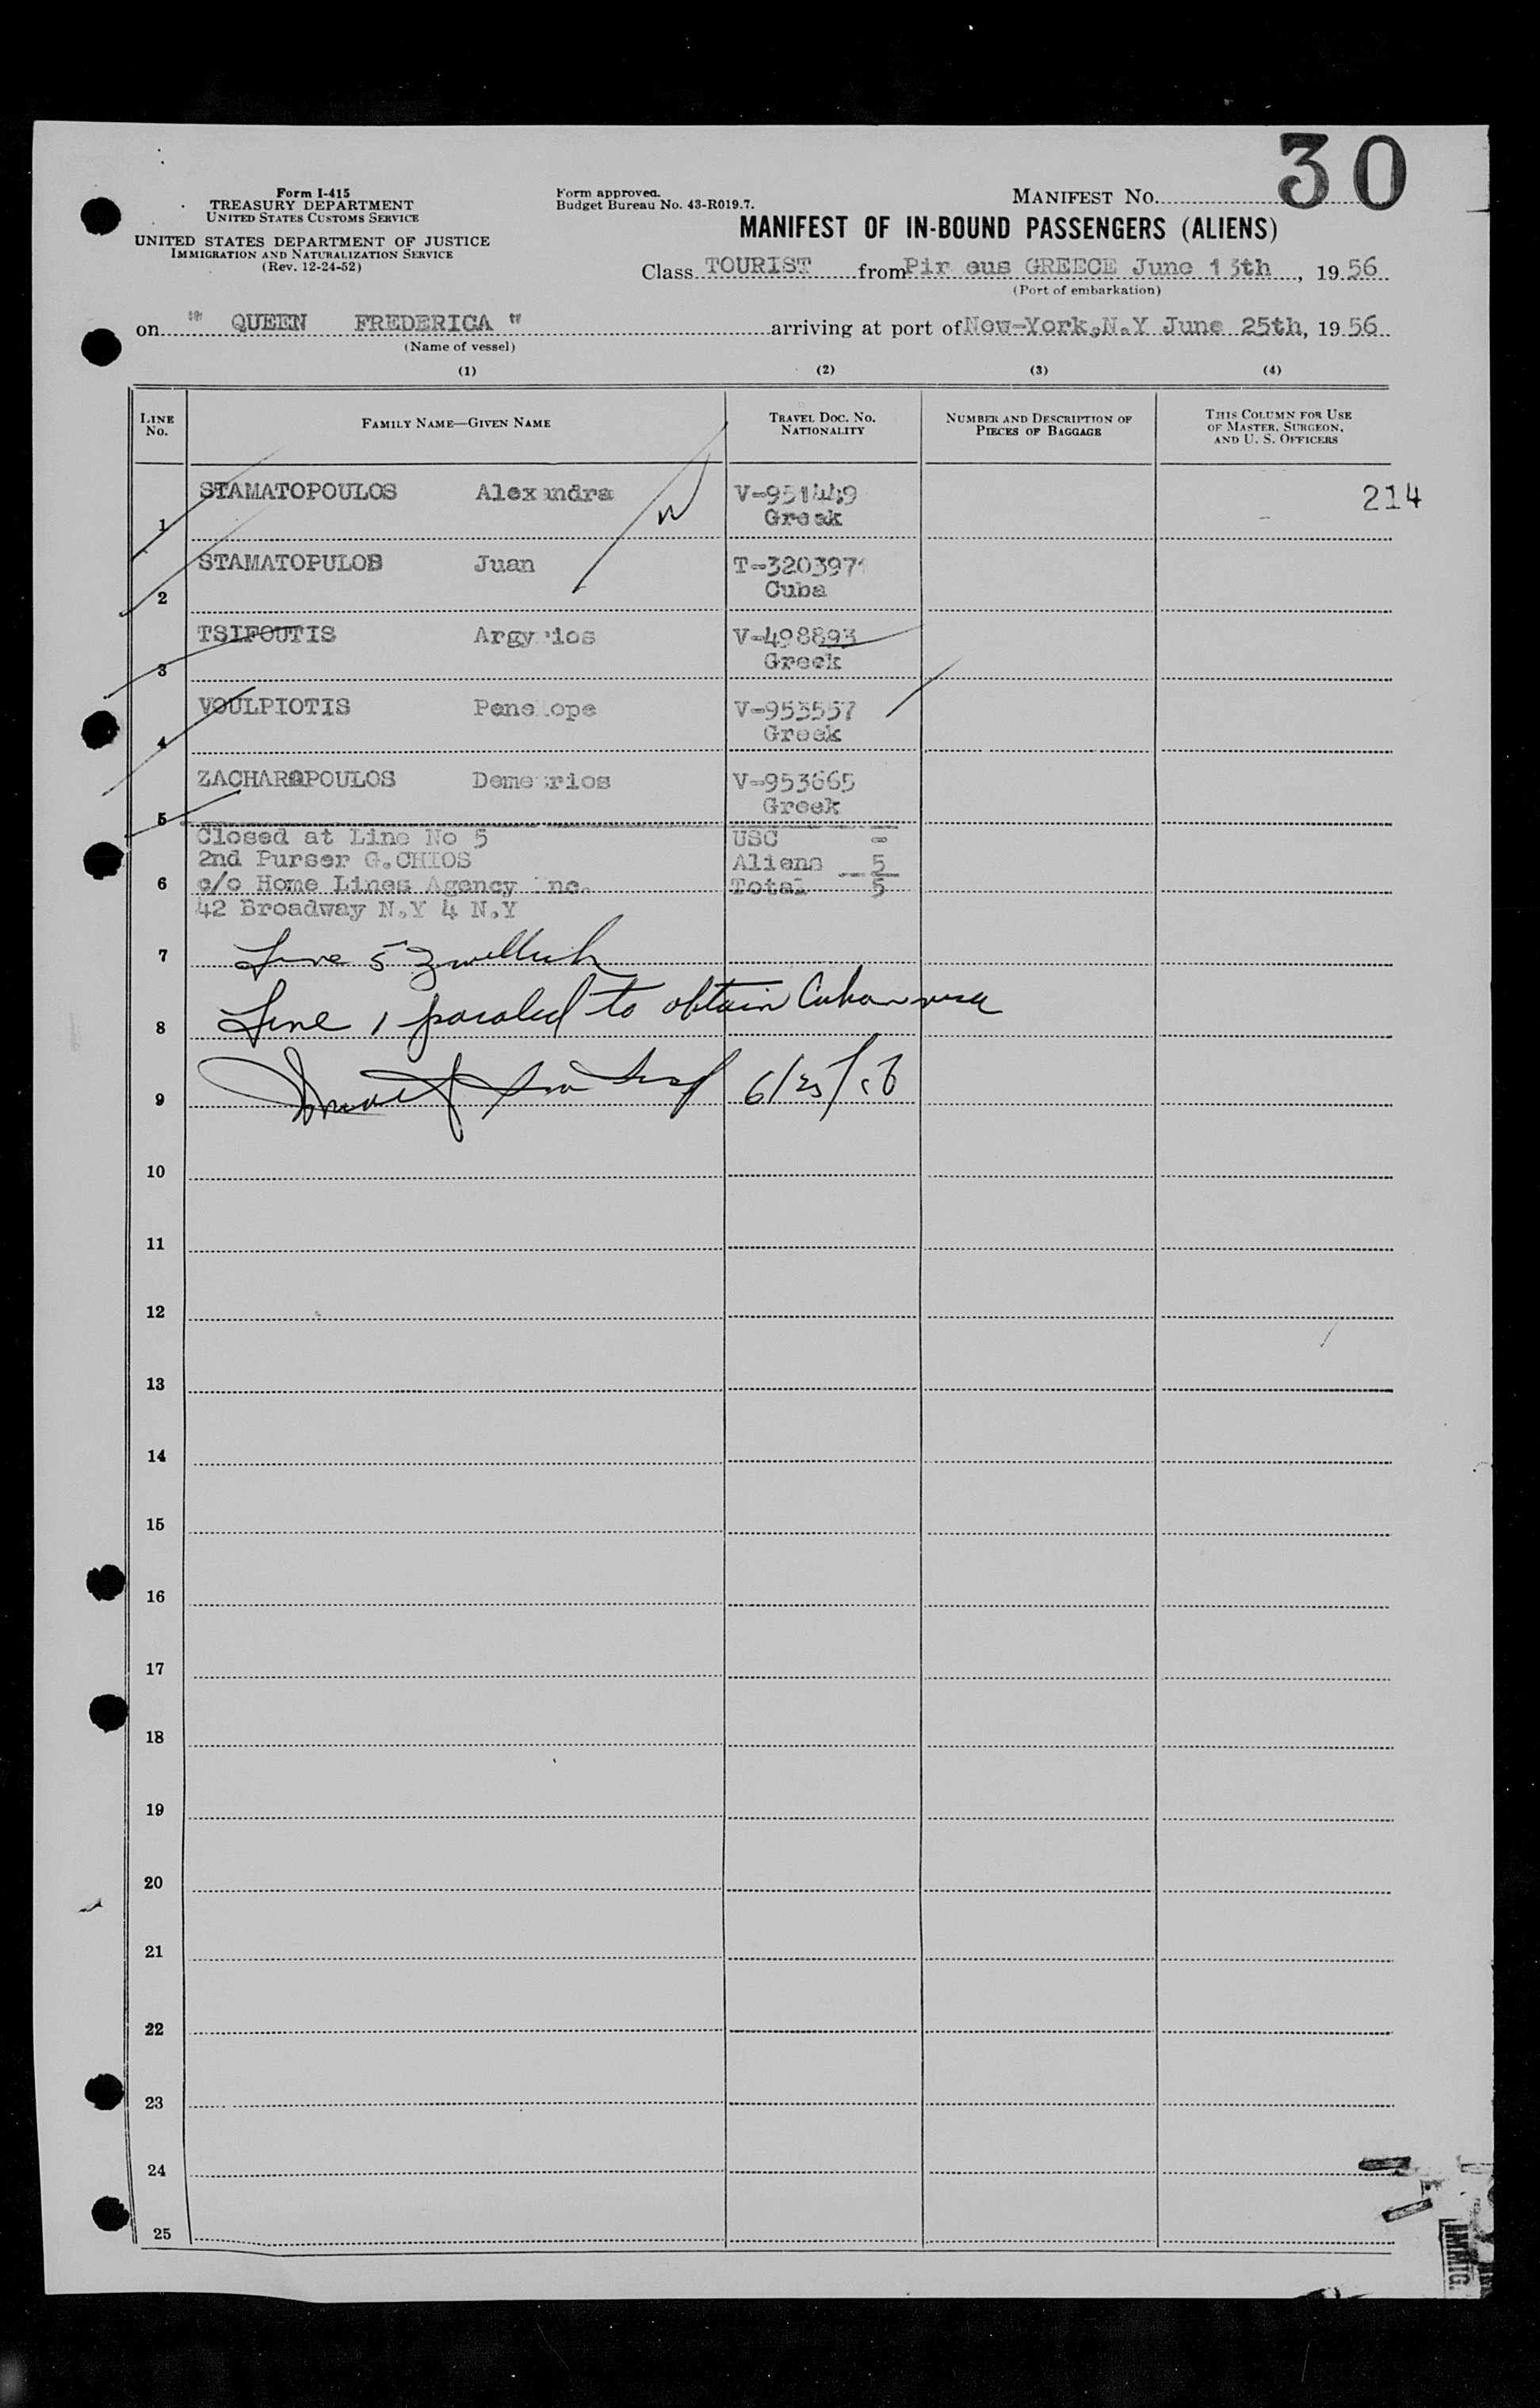 30
Form I-415
TREASURY DEPARTMENT
UNITED STATES CUSTOMS SERVICE
UNITED STATES DEPARTMENT OF JUSTICE
IMMIGRATION AND NATURALIZATION SERVICE
(Rev. 12-24-52)
Form approved.
Budget Bureau No. 43-R019.7.
MANIFEST NO.
MANIFEST OF IN-BOUND PASSENGERS (ALIENS)
Class TOURIST from Pir eus GREECE June 13th, 1956
(Port of embarkation)
on " QUEEN FREDERICA " arriving at port of New-York,N.Y June 25th, 1956
(Name of vessel)
(1) (2) (3) (4)
LINE NO. FAMILY NAME—GIVEN NAME TRAVEL DOC. NO. NATIONALITY NUMBER AND DESCRIPTION OF PIECES OF BAGGAGE THIS COLUMN FOR USE OF MASTER, SURGEON, AND U. S. OFFICERS
1 STAMATOPOULOS Alex ndra V-951449 214
Greek
2 STAMATOPULOS Juan T-3203971
Cuba
3 TSIFOUTIS Argy ios V-498893
Greek
4 VOULPIOTIS Pene ope V-953557
Greek
5 ZACHAROPOULOS Deme rios V-953665
Greek
Closed at Line No 5 USC -
2nd Purser G.CHIOS Aliens 5
6 c/o Home Lines Agency nc. Total 5
42 Broadway N.Y 4 N.Y
7 Line 5
8 Line 1 paroled to obtain Cuban visa
9 6/25/56
10
11
12
13
14
15
16
17
18
19
20
21
22
23
24
25
IMMIG.